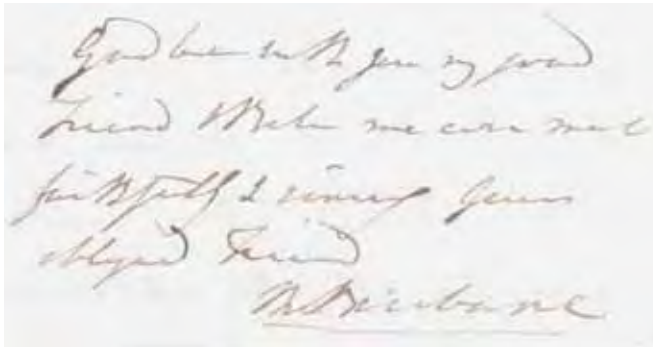 God be with you my good
Friend & Make me ever most
faithfully & sincerely yours
obliged Friend
Brisbane